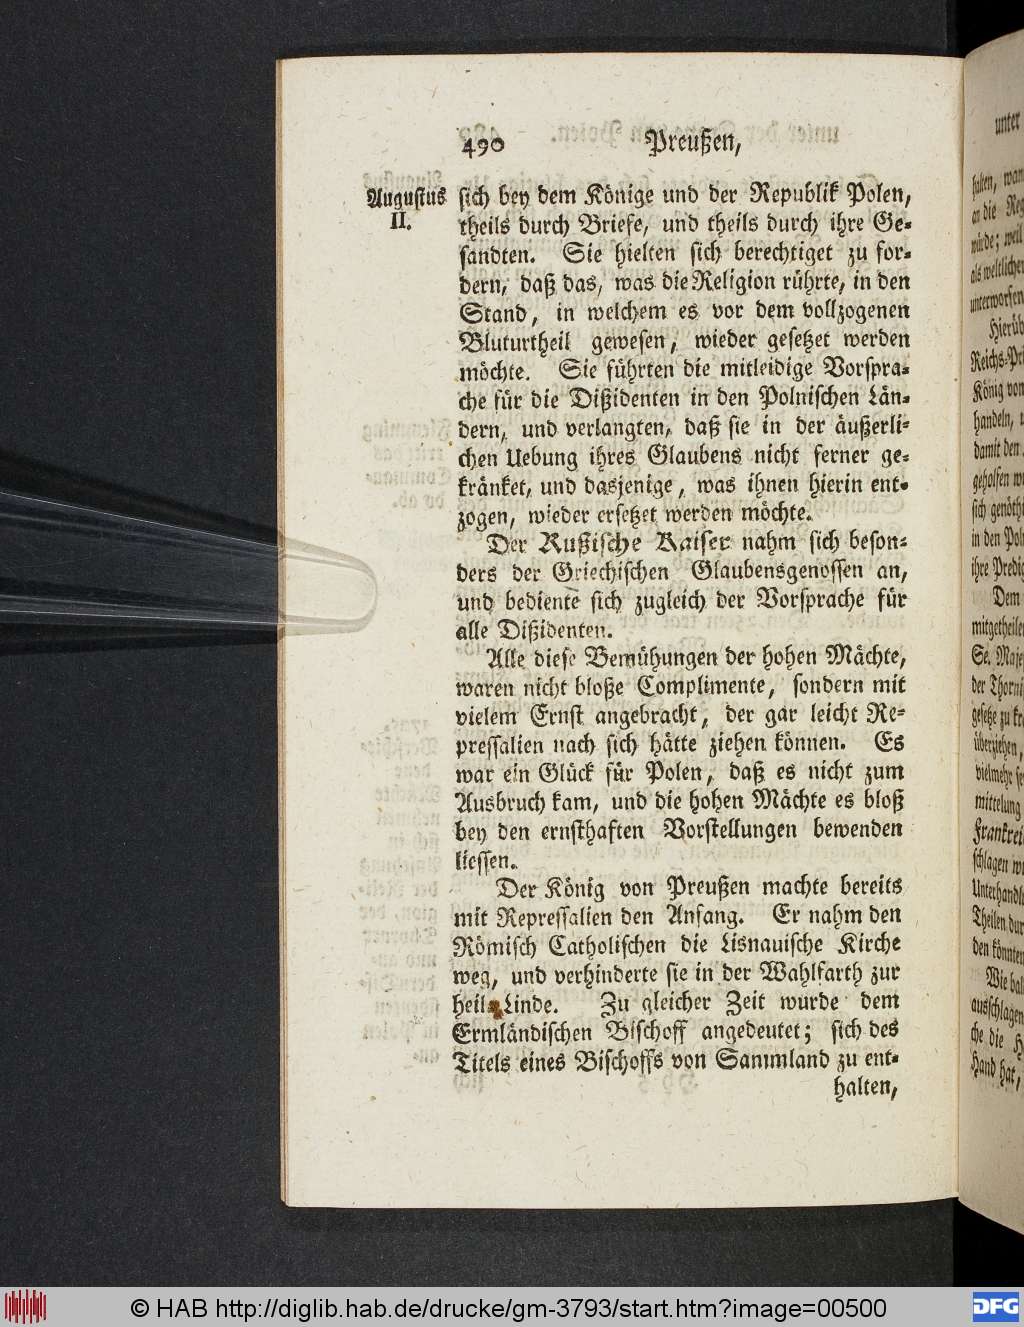 490 Preußen,
Augustus
II.
sich bey dem Könige und der Republik Polen,
theils durch Briefe, und theils durch ihre Ge-
sandten. Sie hielten sich berechtiget zu for-
dern, daß das, was die Religion rührte, in den
Stand, in welchem es vor dem vollzogenen
Bluturtheil gewesen, wieder gesetzet werden
möchte. Sie führten die mitleidige Vorspra-
che für die Dißidenten in den Polnischen Län-
dern, und verlangten, daß sie in der äußerli-
chen Uebung ihres Glaubens nicht ferner ge-
kränket, und dasjenige, was ihnen hierin ent-
zogen, wieder ersetzet werden möchte.
Der Rußische Kaiser nahm sich beson-
ders der Griechischen Glaubensgenossen an,
und bediente sich zugleich der Vorsprache für
alle Dißidenten.
Alle diese Bemühungen der hohen Mächte,
waren nicht bloße Complimente, sondern mit
vielem Ernst angebracht, der gar leicht Re-
pressalien nach sich hätte ziehen können. Es
war ein Glück für Polen, daß es nicht zum
Ausbruch kam, und die hohen Mächte es bloß
bey den ernsthaften Vorstellungen bewenden
liessen.
Der König von Preußen machte bereits
mit Repressalien den Anfang. Er nahm den
Römisch Catholischen die Lisnauische Kirche
weg, und verhinderte sie in der Wahlfarth zur
heil. Linde. Zu gleicher Zeit wurde dem
Ermländischen Bischoff angedeutet; sich des
Titels eines Bischoffs von Sammland zu ent-
halten,
unter
halten, wan
an die Reg
würde; weil
als weltlichen
unterworfen
Hierüb
Reichs-Pri
König von
handeln, u
damit den
geholfen w
sich genöth
in den Pol
ihre Predig
Dem
mitgetheilet
Se. Maje
der Thorni
gesetze zu kr
überziehen,
vielmehr se
mittelung
Frankrei
schlagen w
Unterhandl
Theilen dur
den könnten
Wie bal
ausschlagen
che die H
Hand hat,
© HAB http://diglib.hab.de/drucke/gm-3793/start.htm?image=00500
DFG